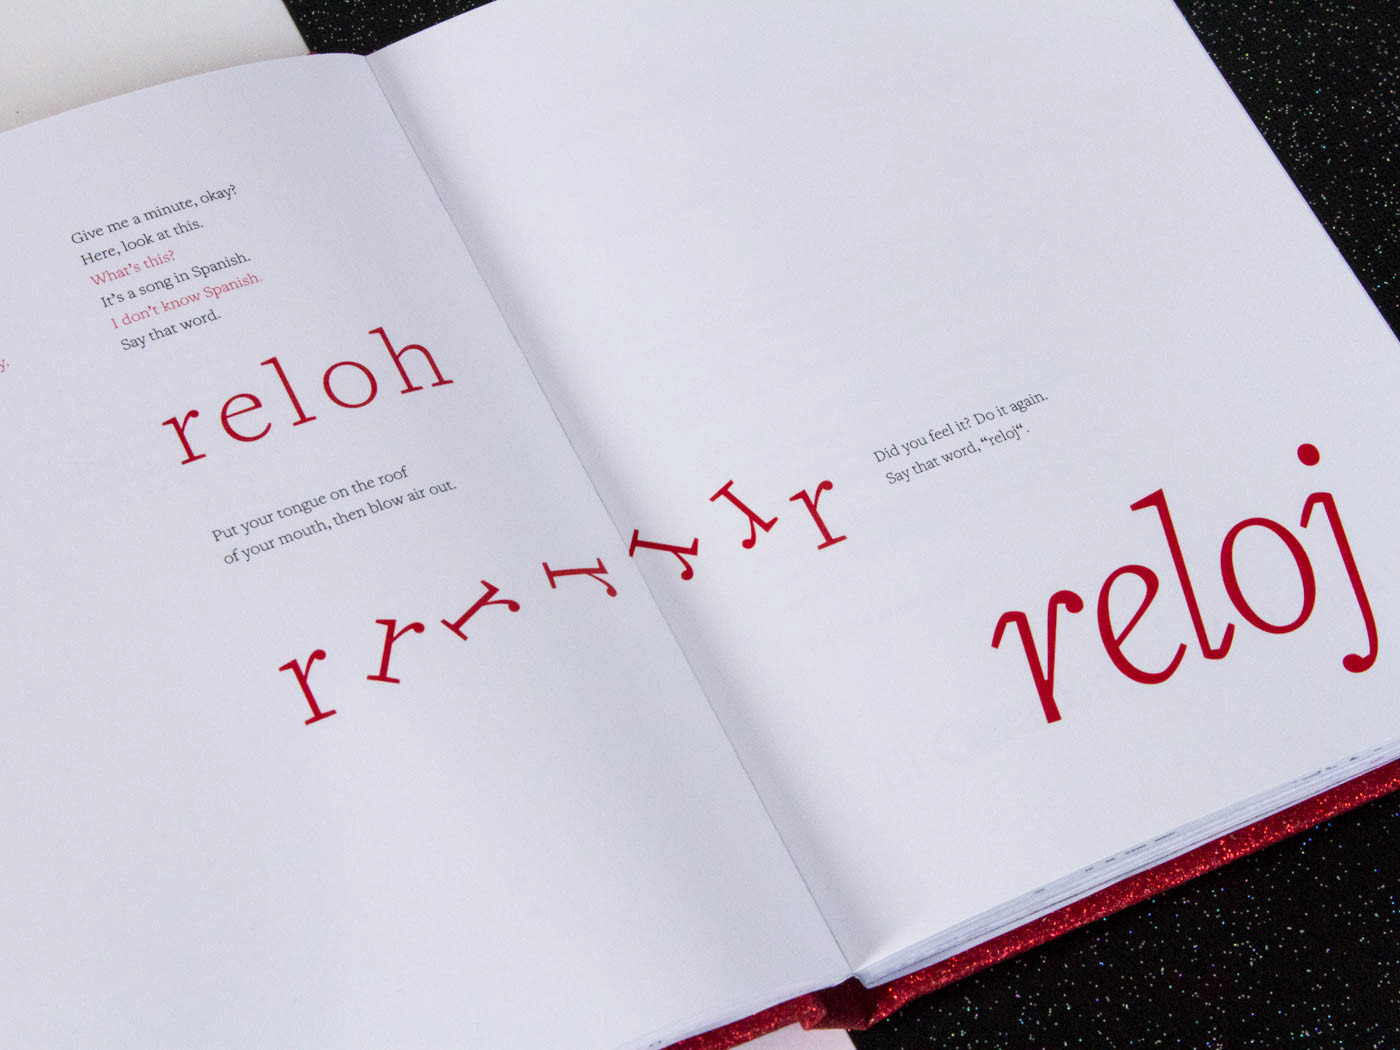 y.
Give me a minute, okay?
Here, look at this.
What's this?
It's a song in Spanish.
I don't know Spanish.
Say that word.
reloh
Put your tongue on the roof
of your mouth, then blow air out.
r r r r r r r
Did you feel it? Do it again.
Say that word, “reloj“.
reloj